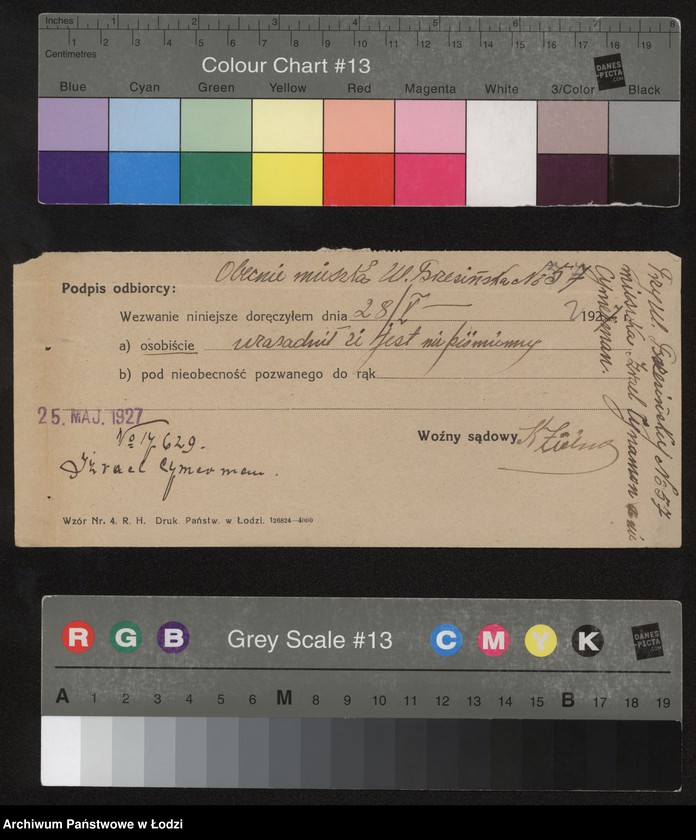 Inches 1 2 3 4 5 6 7 8
Centimetres 1 2 3 4 5 6 7 8 9 10 11 12 13 14 15 16 17 18 19
Colour Chart #13
DANES
-PICTA
.COM
Blue Cyan Green Yellow Red Magenta White 3/Color Black
Obecnie mieszka Ul. Brzezińska No 57
Podpis odbiorcy:
Wezwanie niniejsze doręczyłem dnia 28/V 1927 r.
a) osobiście jest
b) pod nieobecność pozwanego do rąk
25. MAJ. 1927
No 17629.
Izrael Cymerman.
Woźny sądowy
Wzór Nr. 4. R. H. Druk. Państw. w Łodzi. 126824—4000
Przy ul. Brzezińskiej No 57
mieszka Izrael Cynamon a nie
Cymerman.
R G B Grey Scale #13 C M Y K
DANES
-PICTA
.COM
A 1 2 3 4 5 6 M 8 9 10 11 12 13 14 15 B 17 18 19
Archiwum Państwowe w Łodzi